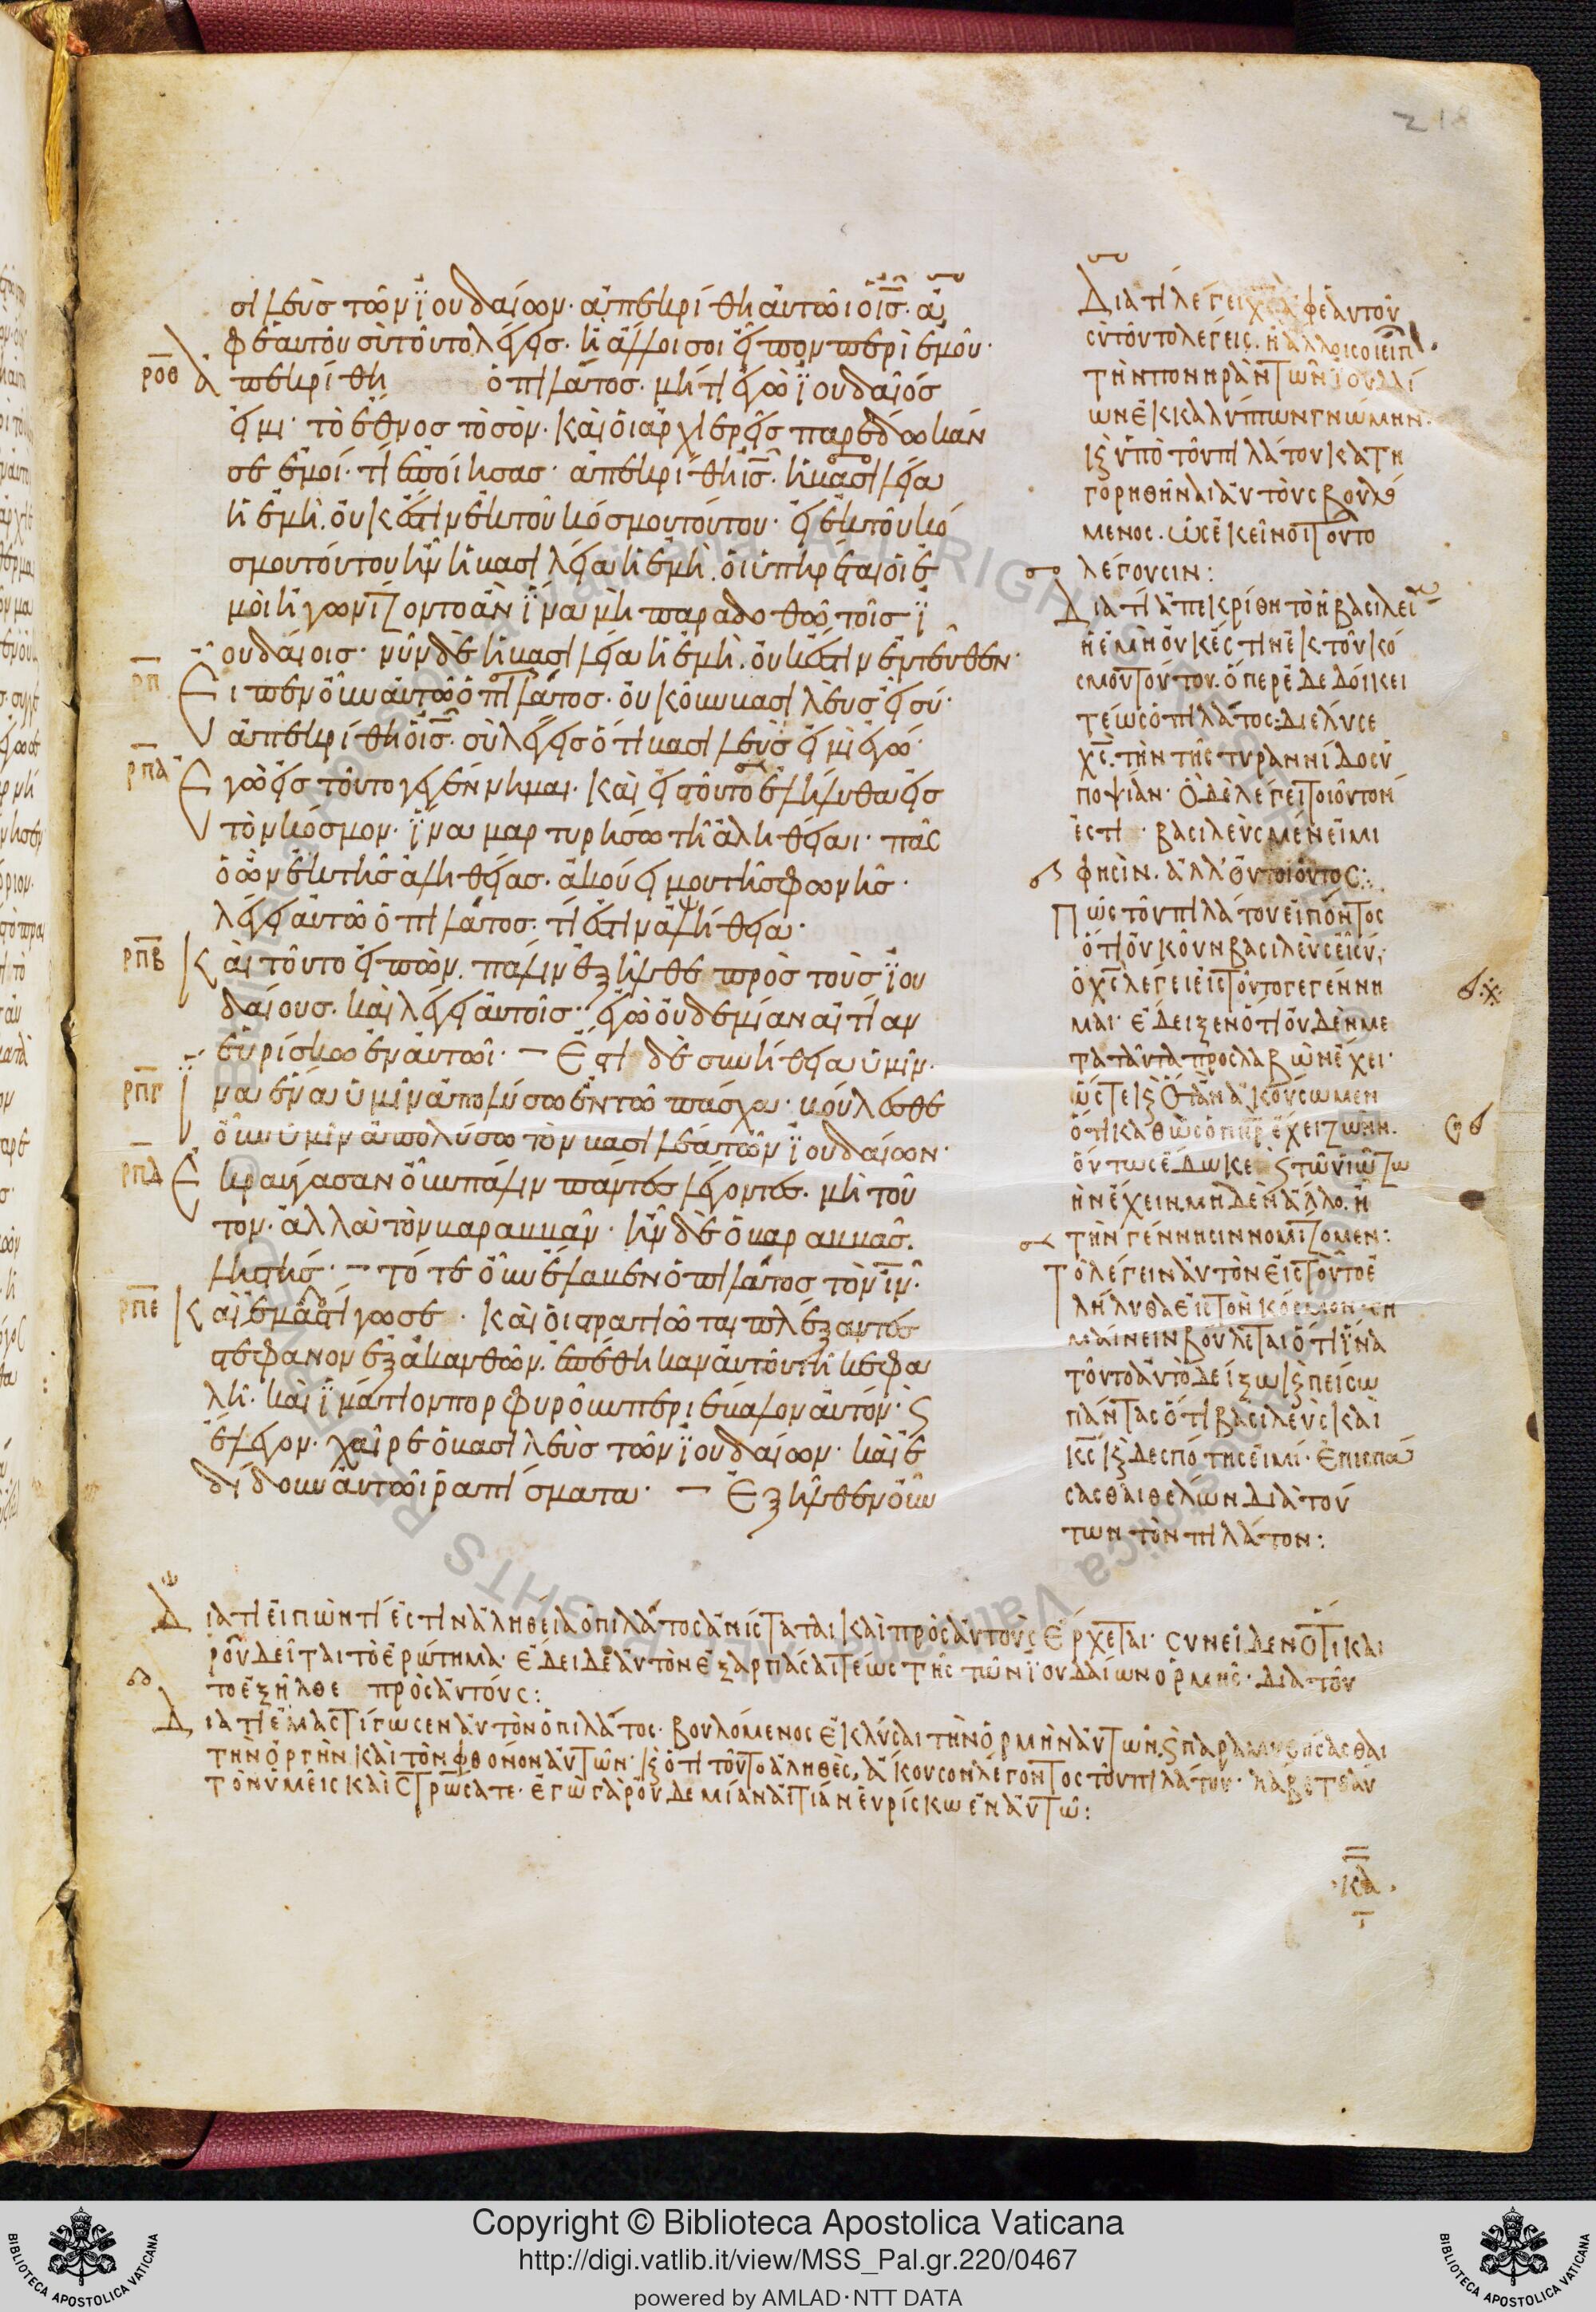 218
σιλεὺς τῶν ἰουδαίων· ἀπεκρίθη ἀυτῶι ὁ ι̅ς̅· ἀ
φ ἑαυτοῦ σὺ τοῦτο λέγεις. ἢ ἄλλοι σοι εἶπον περὶ ἐμοῦ·
ρ̅ο̅θ̅ ἀπεκρίθη ὁ πιλάτος· μήτι ἐγὼ ἰουδαῖός
εἰμι· τὸ ἔθνος τὸ σὸν· καὶ ὁι ἀρχιερεῖς παρέδωκάν
σε ἐμοί· τί ἐποίησας· ἀπεκρίθη ι̅ς̅· ἡ βασιλεία
ἡ ἐμὴ. ὀυκ ἔστιν ἐκ τοῦ κόσμου τούτου· εἰ ἐκ τοῦ κό
σμου τούτου ἦν ἡ βασιλεία ἡ ἐμὴ. ὁι ὑπηρέται ὁι ἐ
μὸι ἠγωνίζοντο ἂν ἵνα μὴ παραδοθῶ τοῖς ἰ
ουδαίοις· νῦν δὲ ἡ βασιλεία ἡ ἐμὴ. ὀυκ ἔστιν ἐντεῦθεν·
ρ̅π̅ Εἶπεν ὀῦν ἀυτῶ ὁ πιλάτος· ὀυκοῦν βασιλεὺς εἶ σύ·
ἀπεκρίθη ὁ ι̅ς̅· σὺ λέγεις ὅτι βασιλεὺς ἐιμὶ ἐγώ·
ρ̅π̅α̅ Εγὼ ἐις τοῦτο γεγέννημαι· καὶ ἐις τοῦτο ἐλήλυθα ἐις
τὸν κόσμον· ἵνα μαρτυρήσω τῆ ἀληθείαι· πᾶς
ὁ ὢν ἐκ τῆς ἀληθείας. ἀκούει μου τῆς φωνῆς·
λέγει ἀυτῶ ὁ πιλάτος· τί ἐστιν ἀλήθεια·
ρ̅π̅β̅ Καὶ τοῦτο ἐιπὼν. πάλιν ἐξῆλθε πρὸς τοὺς ἰου
δαίους. καὶ λέγει ἀυτοῖς· ἐγὼ ὀυδεμίαν αἰτίαν
ἑυρίσκω ἐν ἀυτῶι· – Εστι δὲ συνήθεια ὑμῖν·
ρ̅π̅γ̅ ἵνα ἕνα ὑμῖν ἀπολύσω ἐν τῶ πάσχα· βούλεσθε
ὀῦν ὑμῖν ἀπολύσω τὸν βασιλέα τῶν ἰουδαίων·
ρ̅π̅δ̅ Εκραύγασαν ὀῦν πάλιν πάντες λέγοντες. μὴ τοῦ
τον· ἀλλὰ τὸν βαραββᾶν· ἦν δὲ ὁ βαραββᾶς.
ληστής· – τότε ὀῦν ἔλαβεν ὁ πιλάτος τὸν ι̅ν̅·
ρ̅π̅ε̅ Καὶ ἐμαστίγωσε · καὶ ὁι στρατιῶται πλέξαντες
στέφανον ἐξ ἀκανθῶν. ἐπέθηκαν ἀυτοῦ τῆ κεφα
λῆ· καὶ ἱμάτιον πορφυροῦν περιέβαλον ἀυτόν· ϛ
ἔλεγον· χαῖρε ὁ βασιλεὺς τῶν ἰουδαίων· καὶ ἐ
δίδουν ἀυτῶι ῥαπίσματα· – Εξῆλθεν ὀῦν
Διατί λέγει χ̅ς̅ ἀφ ἑαυτοῦ
σὺ τοῦτο λέγεις. ἢ ἄλλοι σοι εἶπον·
τὴν πονηρὰν τῶν ἰουδαί
ων ἐκκαλύπτων γνώμην·
κ ὑπὸ τοῦ πιλάτου κατη
γορηθῆναι ἀυτοὺς βουλό
μενος. ὡς ἐκεῖνοι τοῦτο
λέγουσιν:
Διατί ἀπεκρίθη τὸ ἡ βασιλεία
ἡ ἐμὴ ὀυκ ἔστιν ἐκ τοῦ κό
σμου τούτου. ὅπερ ἐδεδοίκει
τέως ὁ πιλάτος· διέλυσε
χ̅ς̅. τὴν τῆς τυραννίδος ὑ
ποψίαν· Ὃ δὲ λέγει τοιοῦτον
ἐστι · βασιλεὺς μέν εἰμι
φησὶν. ἀλλ ὀυ τοιοῦτος:
Πῶς τοῦ πιλάτου εἰπόντος
ὅτι ὀυκοῦν βασιλεὺς εἶ σύ·
ὁ χ̅ς̅ λέγει ἐις τοῦτο γεγέννη
μαι· ἔδειξεν ὅτι ὀυδὲν με
τὰ ταῦτα προσλαβὼν ἔχει·
ὥστε κ ὅταν ἀκούσωμεν
ὅτι καθὼς ὁ π̅η̅ρ̅ ἔχει ζωὴν.
ὅυτως ἔδωκε ϛ τῶ υἱῶ ζω
ὴν ἔχειν. μηδὲν ἄλλο. ἢ
τὴν γέννησιν νομίζομεν:
Τὸ λέγειν ἀυτὸν ἐις τοῦτο ἐ
λήλυθα ἐις τὸν κόσμον· ση
μαίνειν βούλεται ὅτι ἵνα
τοῦτο ἀυτὸ δείξω κ πείσω
πάντας ὅτι βασιλεὺς καὶ
κ̅ς̅ κ δεσπότης ἐιμί· Ἐπισπά
σασθαι θέλων διὰ τού
των τὸν πιλάτον:
Διατί ἐιπὼν τί ἐστιν ἀλήθεια ὁ πιλάτος ἀνίσταται καὶ πρὸς ἀυτοὺς ἔρχεται· συνεῖδεν ὅτι και
ροῦ δεῖται τὸ ἐρώτημα· ἔδει δὲ ἀυτὸν ἐξαρπάσαι τέως τῆς τῶν ἰουδαίων ὁρμῆς· διὰ τοῦ
το ἐξῆλθε πρὸς ἀυτούς:
Διατί ἐμαστίγωσεν ἀυτὸν ὁ πιλάτος· βουλόμενος ἐκλύσαι τὴν ὁρμὴν ἀυτῶν. ϛ παραμυθήσασθαι
τὴν ὀργὴν καὶ τὸν φθόνον ἀυτῶν· κ ὅτι τοῦτο ἀληθὲς, ἄκουσον λέγοντος τοῦ πιλάτου· λάβετε ἀυ
τὸν ὑμεῖς καὶ στρώσατε· ἐγὼ γὰρ ὀυδεμίαν αἰτίαν ἑυρίσκω ἐν ἀυτῶ:
κδ
Copyright © Biblioteca Apostolica Vaticana
http://digi.vatlib.it/view/MSS_Pal.gr.220/0467
powered by AMLAD·NTT DATA
BIBLIOTECA APOSTOLICA VATICANA
BIBLIOTECA APOSTOLICA VATICANA